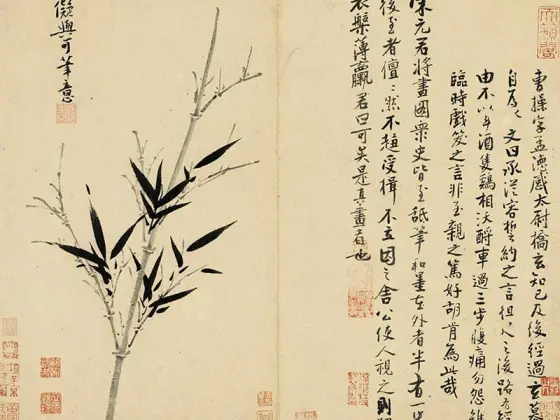 曹操字孟德感太尉橋玄知己及後經過玄墓
文曰承從容誓約之言徂之後路有經
由不以斗酒隻鷄相沃酹車過三步腹痛勿怨
臨時戲笑之言非至親之篤好胡肯為此哉
宋元君將畫圖衆史皆至舐筆和墨在外者半有一
後至者儃〻然不趨受揖不立因之舍公使人視之則
衣槃薄臝君曰可矣是真畫者也
儗與可筆意